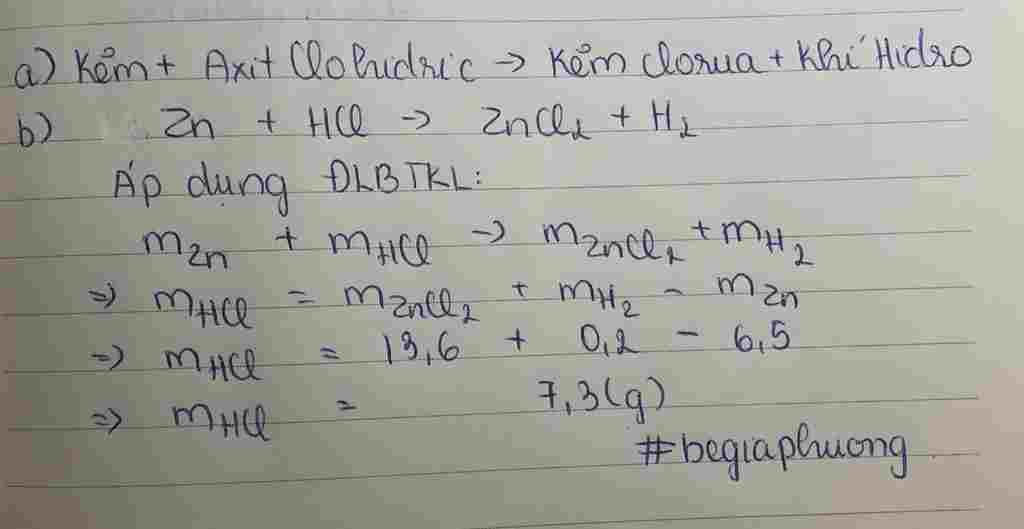 a) Kẽm + Axit Clohidric → Kẽm clorua + Khí Hidro
b) Zn + HCl → ZnCl₂ + H₂
Áp dụng ĐLBTKL:
m_Zn + m_HCl → m_ZnCl₂ + m_H₂
=> m_HCl = m_ZnCl₂ + m_H₂ - m_Zn
=> m_HCl = 13,6 + 0,2 - 6,5
=> m_HCl = 7,3(g)
#begiaphuong